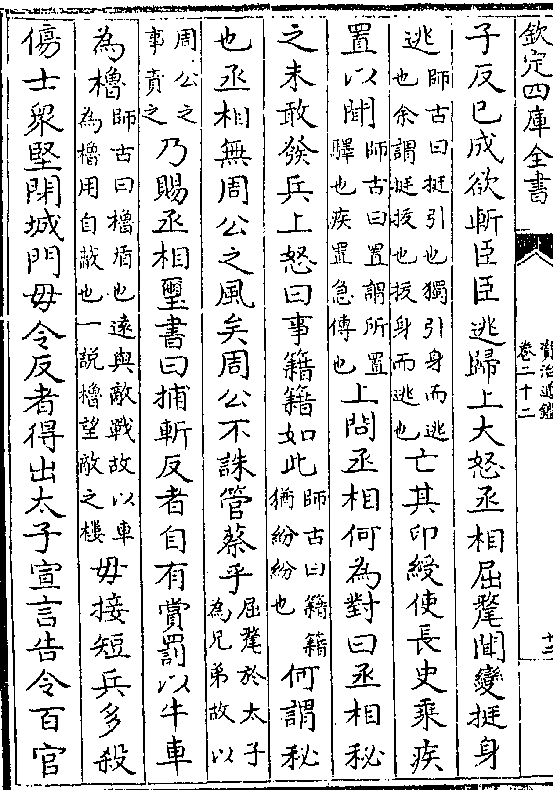 欽定四庫全書
資治通鑑
卷二十二
子反已成欲斬臣臣逃歸上大怒丞相屈氂聞變挺身
逃師古曰挺引也獨引身而逃也余謂挺拔也拔身而逃也亡其印綬使長史乘疾
置以聞師古曰置謂所置驛也疾置急傳也上問丞相何為對曰丞相秘
之未敢發兵上怒曰事籍籍如此師古曰籍籍猶紛紛也何謂秘
也丞相無周公之風矣周公不誅管蔡乎屈氂於太子為兄弟故以
周公之事責之乃賜丞相璽書曰捕斬反者自有賞罰以牛車
為櫓師古曰櫓盾也遠與敵戰故以車為櫓用自蔽也一說櫓望敵之樓毋接短兵多殺
傷士衆堅閉城門毋令反者得出太子宣言告令百官